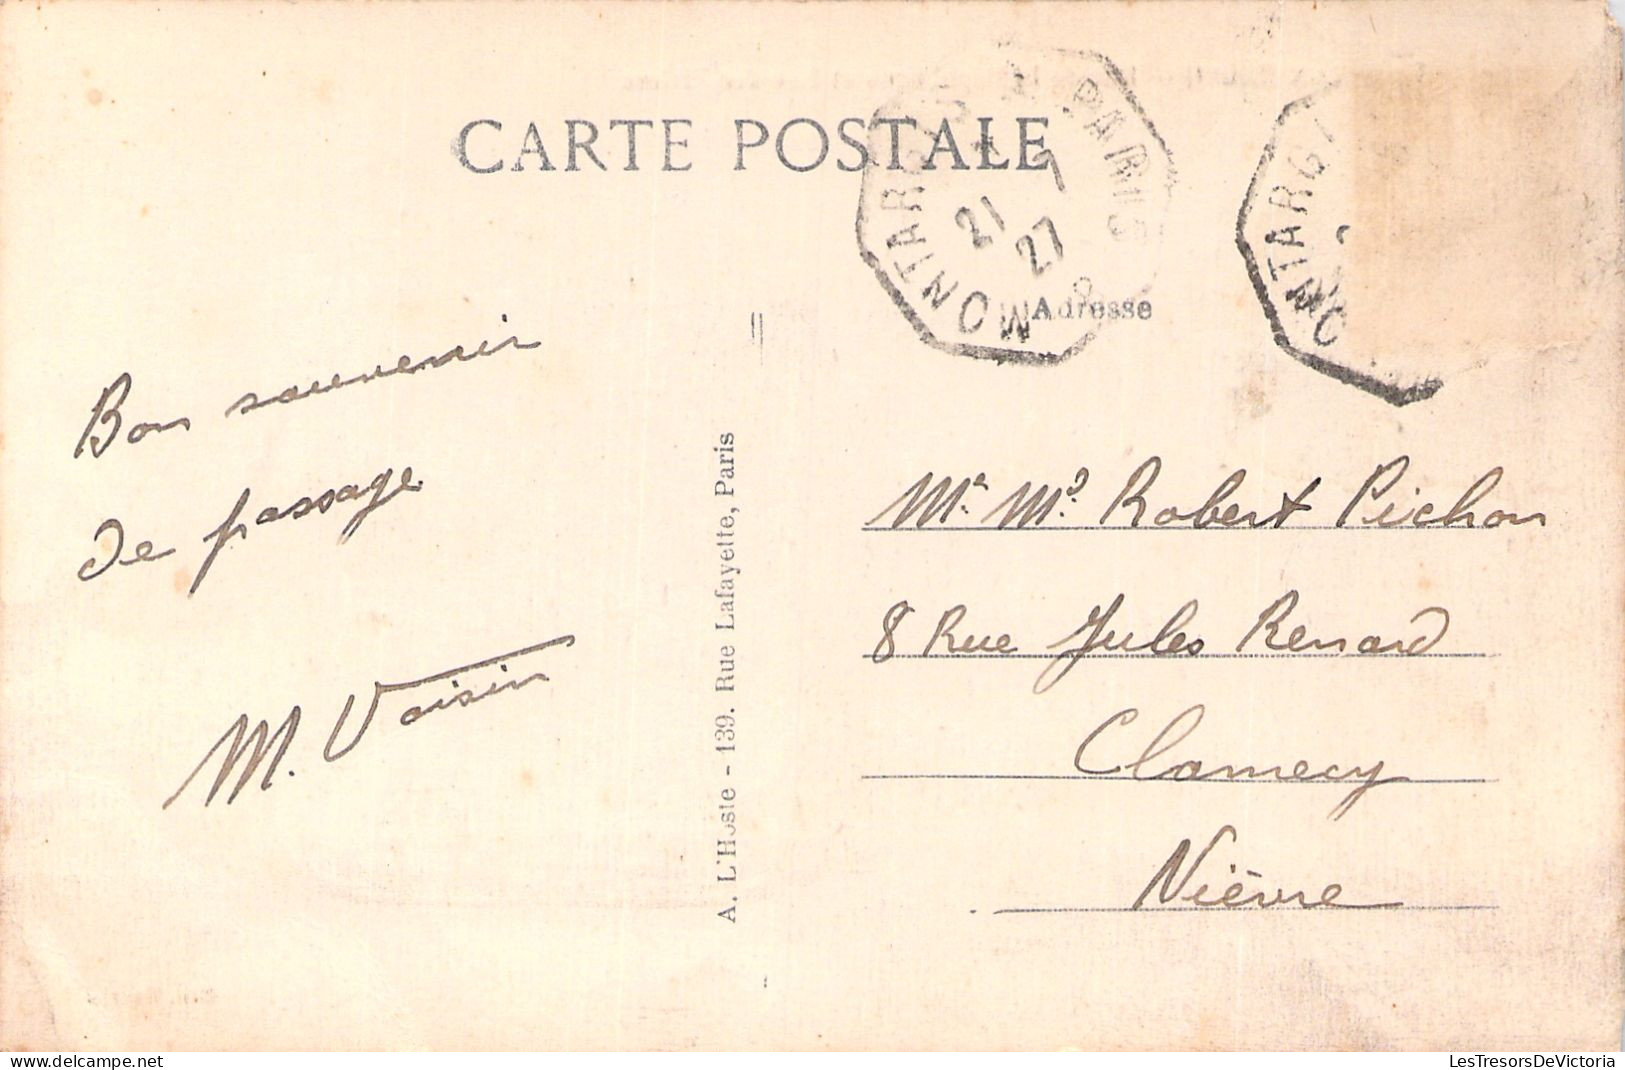 CARTE POSTALE
MONTARGIS A PARIS
21 7
27
MONTARGI
Adresse
Bon souvenir
de passage
M. Voisin
A. L'Hoste - 139. Rue Lafayette, Paris
Mr. Md. Robert Pichon
8 Rue Jules Renard
Clamecy
Nièvre
LesTresorsDeVictoria